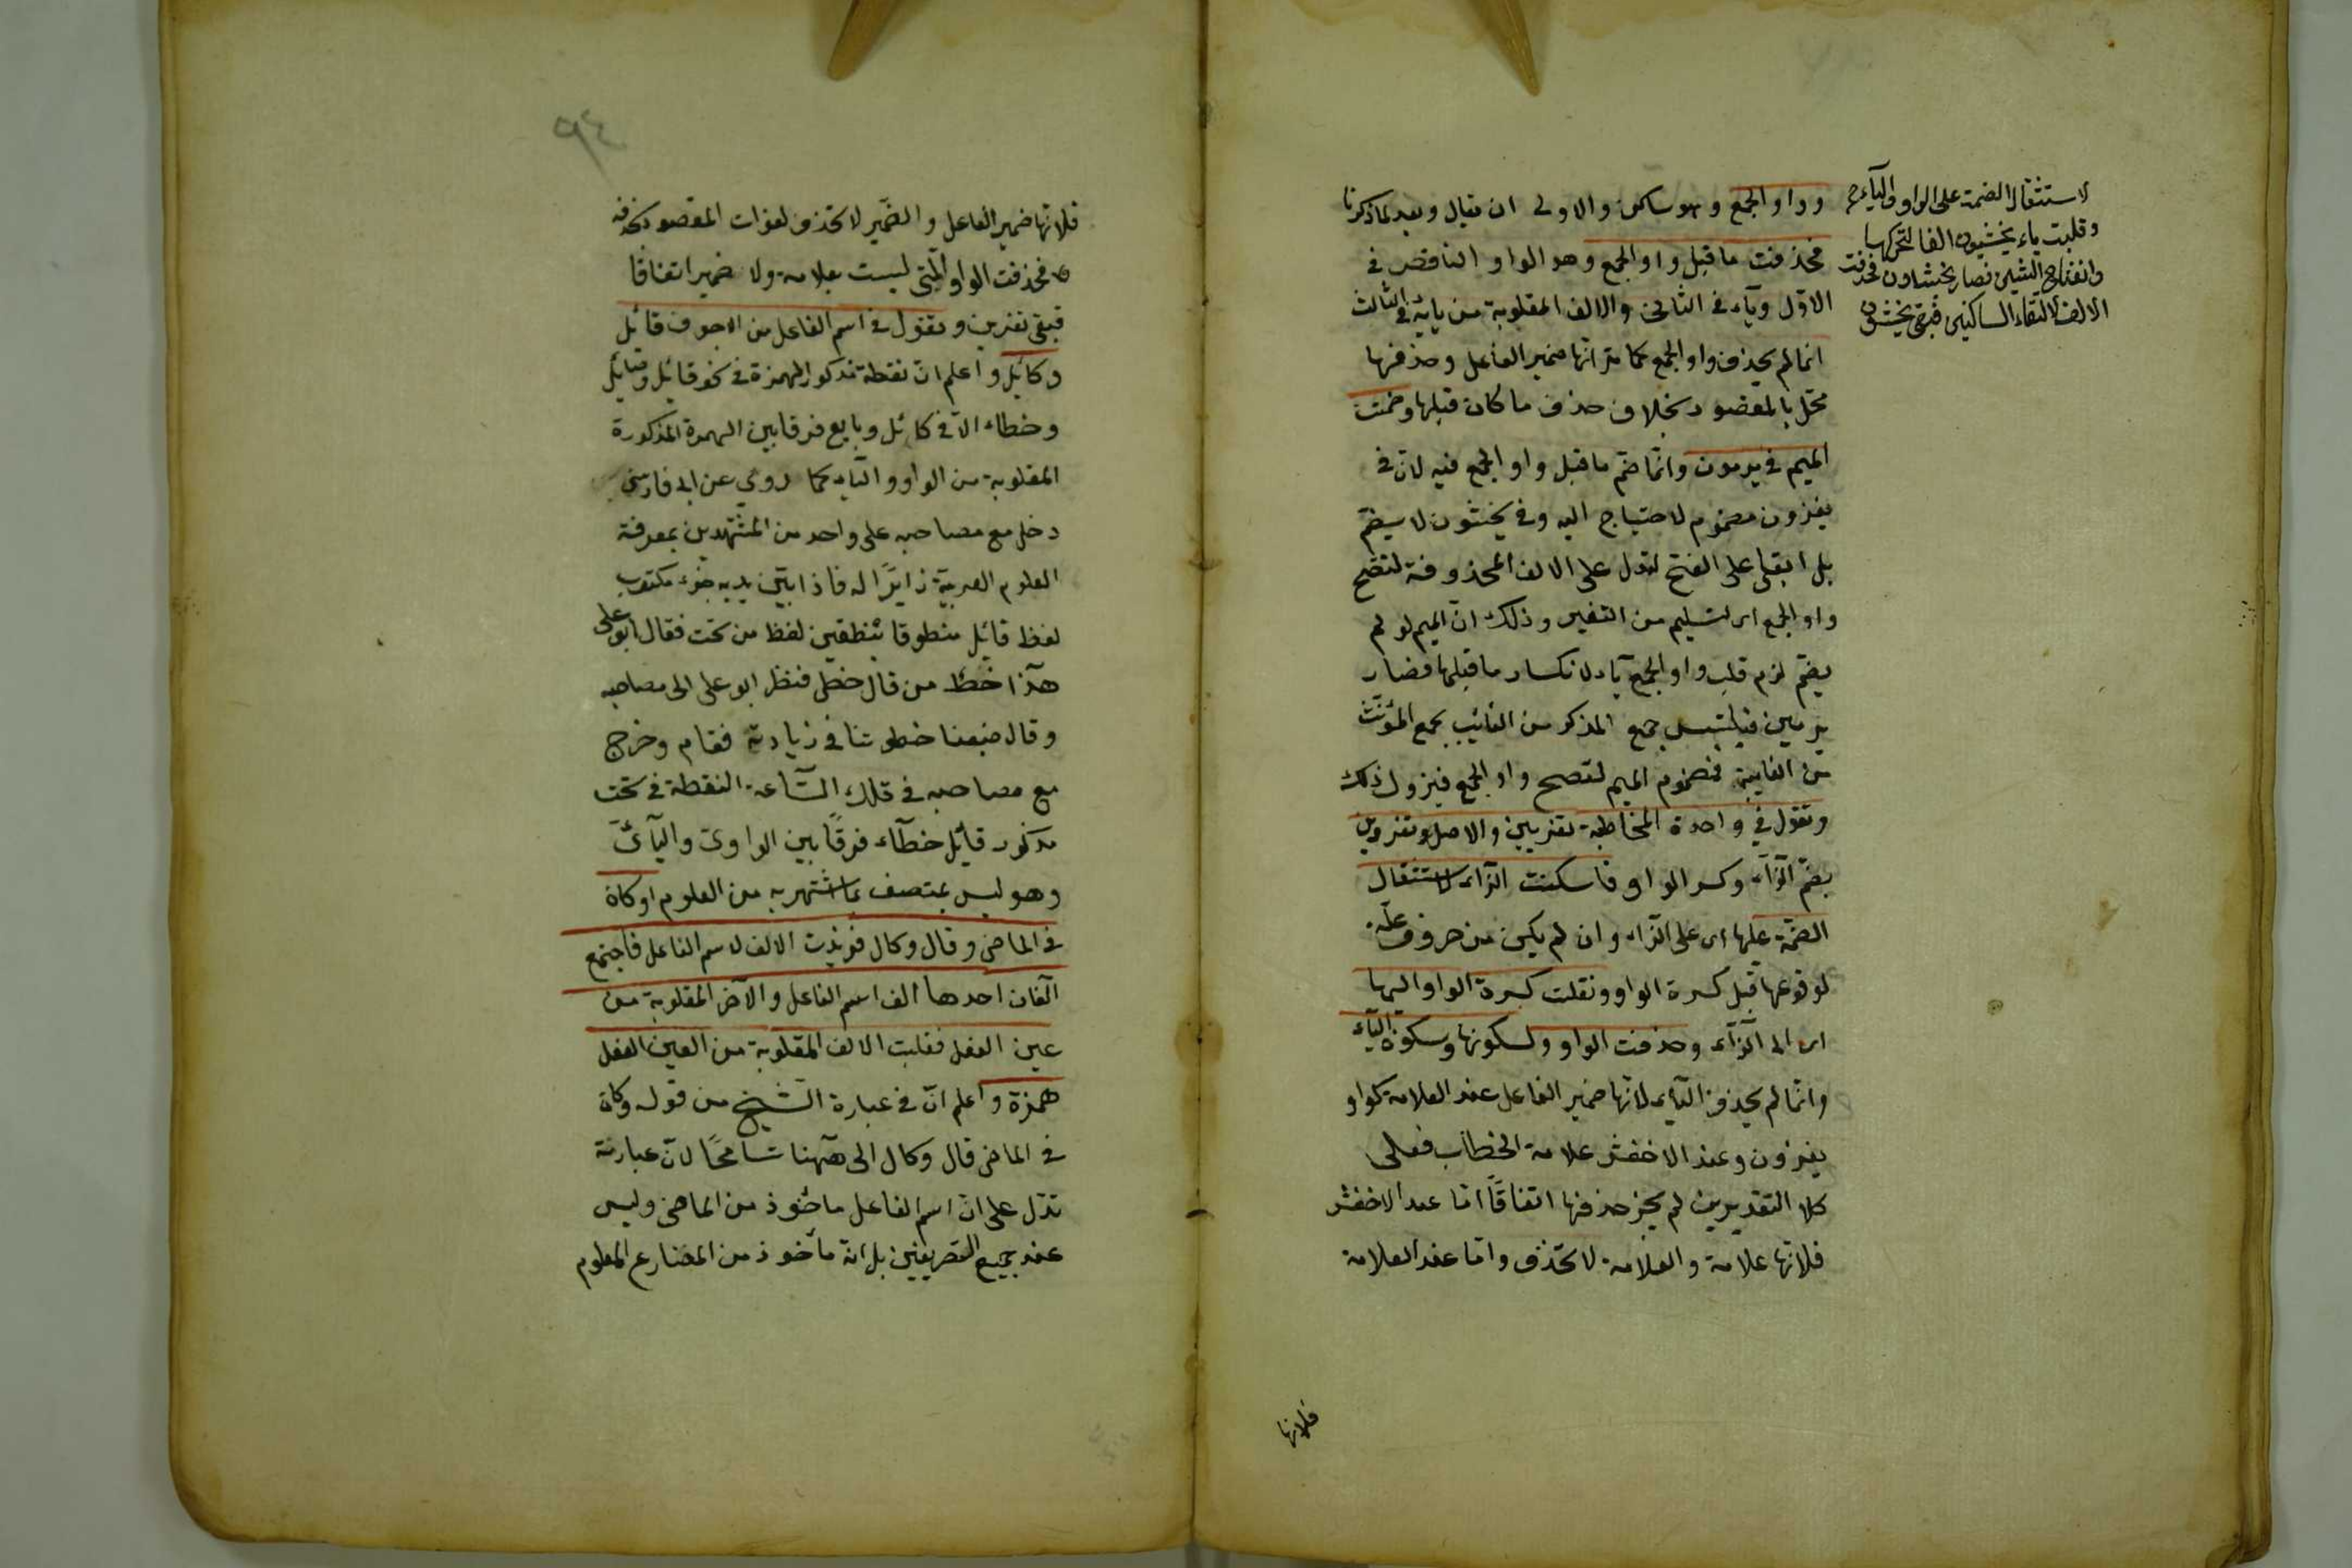 وواو الجمع وهو ساكن والاولى ان يقال وبعد ما ذكرنا
فحذفت ما قبل واو الجمع وهو الواو الناقص في
الاوّل وياء في الثاني والالف المقلوبة من يائه في الثالث
انما لم يحذف واو الجمع كما مر انها ضمير الفاعل وحذفها
مخل بالمقصود بخلاف حذف ما كان قبلها وضمت
الميم في يرمون وانما ضم ما قبل واو الجمع فيه لان في
يغزون مضموم لاحتياج اليه وفي يخشون لا يضم
بل ابقى على الفتح لتدل على الالف المحذوفة لتصح
واو الجمع اى لتسليم من التغير وذلك ان الميم لو لم
يضم لزم قلب واو الجمع ياء لانكسار ما قبلها فصار
يرمين فيلتبس جمع المذكر من الغائب بجمع المؤنث
من الغايبة فضموم الميم لتصح واو الجمع فيزول ذلك
وتقول في واحدة المخاطبة تغزين والاصل تغزوين
بضم الزاء وكسر الواو فاسكنت الزاء لاستثقال
الضمة عليها اى على الزاء وان لم يكن من حروف علة
لوقوعها قبل كسرة الواو ونقلت كسرة الواو اليها
اى الى الزاء وحذفت الواو ولسكونها وسكون الياء
وانما لم يحذف الياء لانها ضمير الفاعل عند العلامة كواو
يغزون وعند الاخفش علامة الخطاب فعلى
كلا التقديرين لم يجز حذفها اتفاقًا اما عند الاخفش
فلانها علامة والعلامة لا تحذف واما عند العلامة
فلانها
لاستثقال الضمة على الواو والياء
وقلبت ياء يخشيون الفا لتحركها
وانفتاح الشين فصار يخشاون فحذفت
الالف لالتقاء الساكنين فبقى يخشون
٩٤
فلانها ضمير الفاعل والضمير لا تحذف لفوات المقصود بحذفه
فحذفت الواو التى ليست بعلامة ولا ضمير اتفاقا
فبقى تغزين وتقول في اسم الفاعل من الاجوف قائل
وكائل واعلم ان نقطة مذكور الهمزة في نحو قائل وقبائل
وخطاء الا في كائل وبايع فرقا بين الهمزة المذكورة
المقلوبة من الواو والياء كما روي عن ابى فارسى
دخل مع مصاحبه على واحد من المشتهرين بمعرفة
العلوم العربية زايرًا له فاذا بين يديه جزء مكتوب
لفظ قايل منطوقا بنقطتين لفظ من تحت فقال ابو على
هذا خط من قال خطى فنظر ابو على الى مصاحبه
وقال ضيعنا خطوتنا في زيارته فقام وخرج
مع مصاحبه في تلك الساعة النقطة في تحت
مذكور قايل خطآء فرقًا بين الواوى واليآئى
وهو ليس بمتصف بما اشتهر به من العلوم او كان
في الماضى وقال وكال فزيدت الالف لاسم الفاعل فاجتمع
الفان احدها الف اسم الفاعل والآخر المقلوبة من
عين الفعل فقلبت الالف المقلوبة من العين الفعل
همزة واعلم ان في عبارة الشيخ من قوله وكان
في الماضى قال وكال الى ههنا تسامحًا لان عبارته
تدل على ان اسم الفاعل ماخوذ من الماضى وليس
عند جميع التصريفين بل انه مأخوذ من المضارع المعلوم